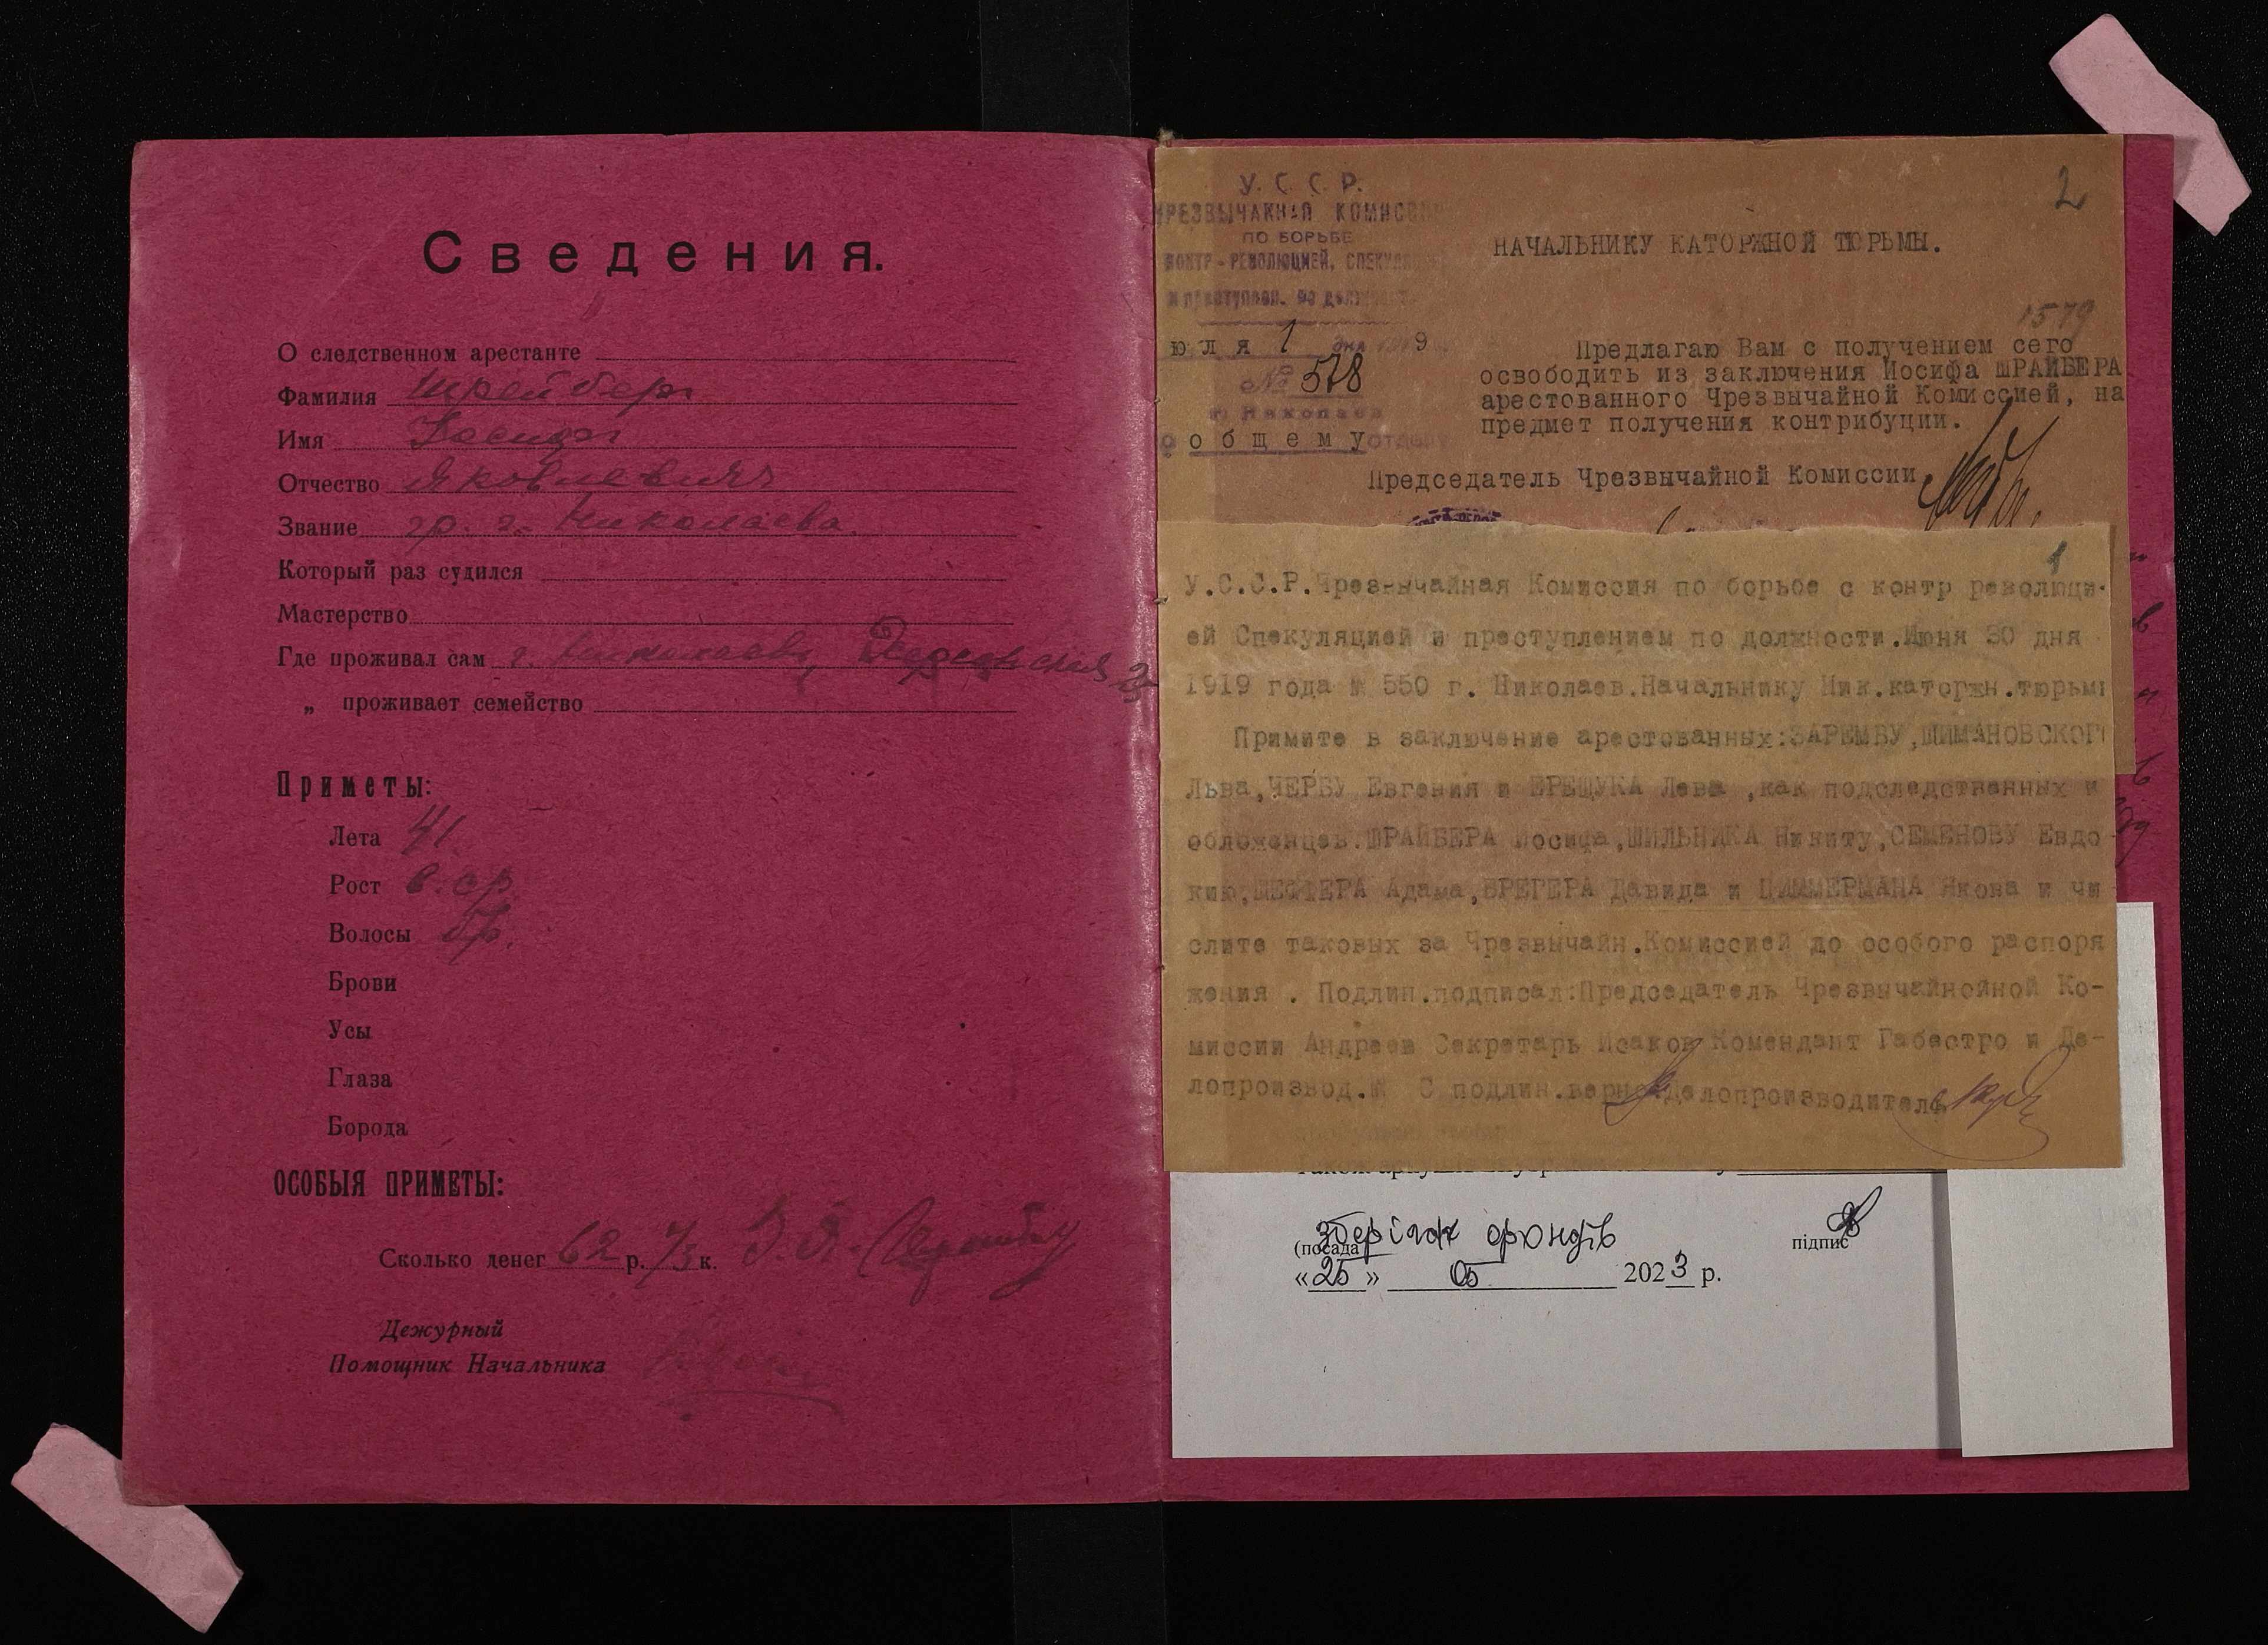 Сведения.
О следственном арестанте
Фамилия Шрейбер
Имя Иосиф
Отчество Яковлевич
Звание гр. г. Николаева.
Который раз судился
Мастерство
Где проживал сам г. Николаев,
„ проживает семейство
Приметы:
Лета 41.
Рост в. ср.
Волосы
Брови
Усы
Глаза
Борода
ОСОБЫЯ ПРИМЕТЫ:
Сколько денег 62 р. 73 к.
Дежурный
Помощник Начальника
2
У. С. С. Р.
ЧРЕЗВЫЧАЙНАЯ КОМИССИ
ПО БОРЬБЕ
КОНТР-РЕВОЛЮЦИЕЙ, СПЕКУЛ
и преступлен. по долж
юля 1 дня 1919
№ 578
г. Николаев
о общему отделу
НАЧАЛЬНИКУ КАТОРЖНОЙ ТЮРЬМЫ.
1579
Предлагаю Вам с получением сего
освободить из заключения Иосифа ШРАЙБЕРА
арестованного Чрезвычайной Комиссией, на
предмет получения контрибуции.
Председатель Чрезвычайной Комиссии
1
У.С.С.Р.Чрезвычайная Комиссия по борьбе с контр революци-
ей Спекуляцией и преступлением по должности.Июня 30 дня
1919 года № 550 г. Николаев.Начальнику Ник.каторжн.тюрьмы
Примите в заключение арестованных:ЗАРЕМБУ,ШИМАНОВСКОГ
Льва,ЧЕРВУ Евгения и ЕРЕЩУКА Лева ,как подследственных и
обложенцев.ШРАЙБЕРА Иосифа,ШИЛЬНИКА Никиту,СЕМЕНОВУ Евдо
кию,ШЕФФЕРА Адама,БРЕГЕРА Давида и ЦИММЕРМАНА Якова и чи
слите таковых за Чрезвычайн.Комиссией до особого распоря
жения . Подлин.подписал:Председатель Чрезвычайнойной Ко-
миссии Андреев Секретарь Исаков Комендант Габестро и Де-
лопроизвод.№ С подлин.верно:Делопроизводитель
зберігач фондів
(посада
підпис
«25» 05 2023 р.